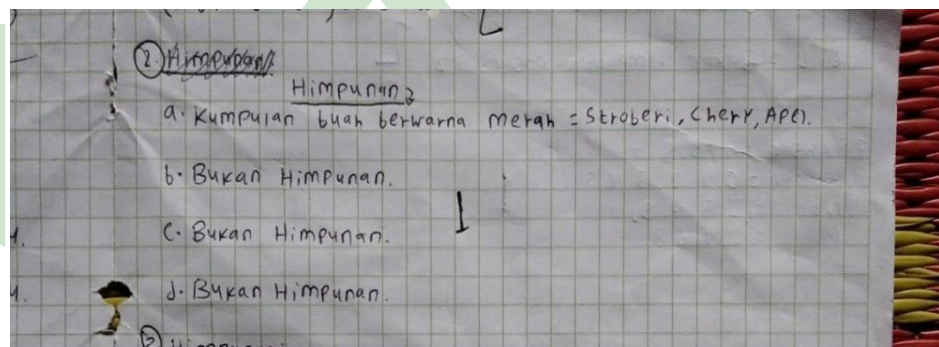 ② Himpunan
Himpunan
a. Kumpulan buah berwarna merah = Stroberi, Chery, Apel.
b. Bukan Himpunan.
I
c. Bukan Himpunan.
d. Bukan Himpunan.